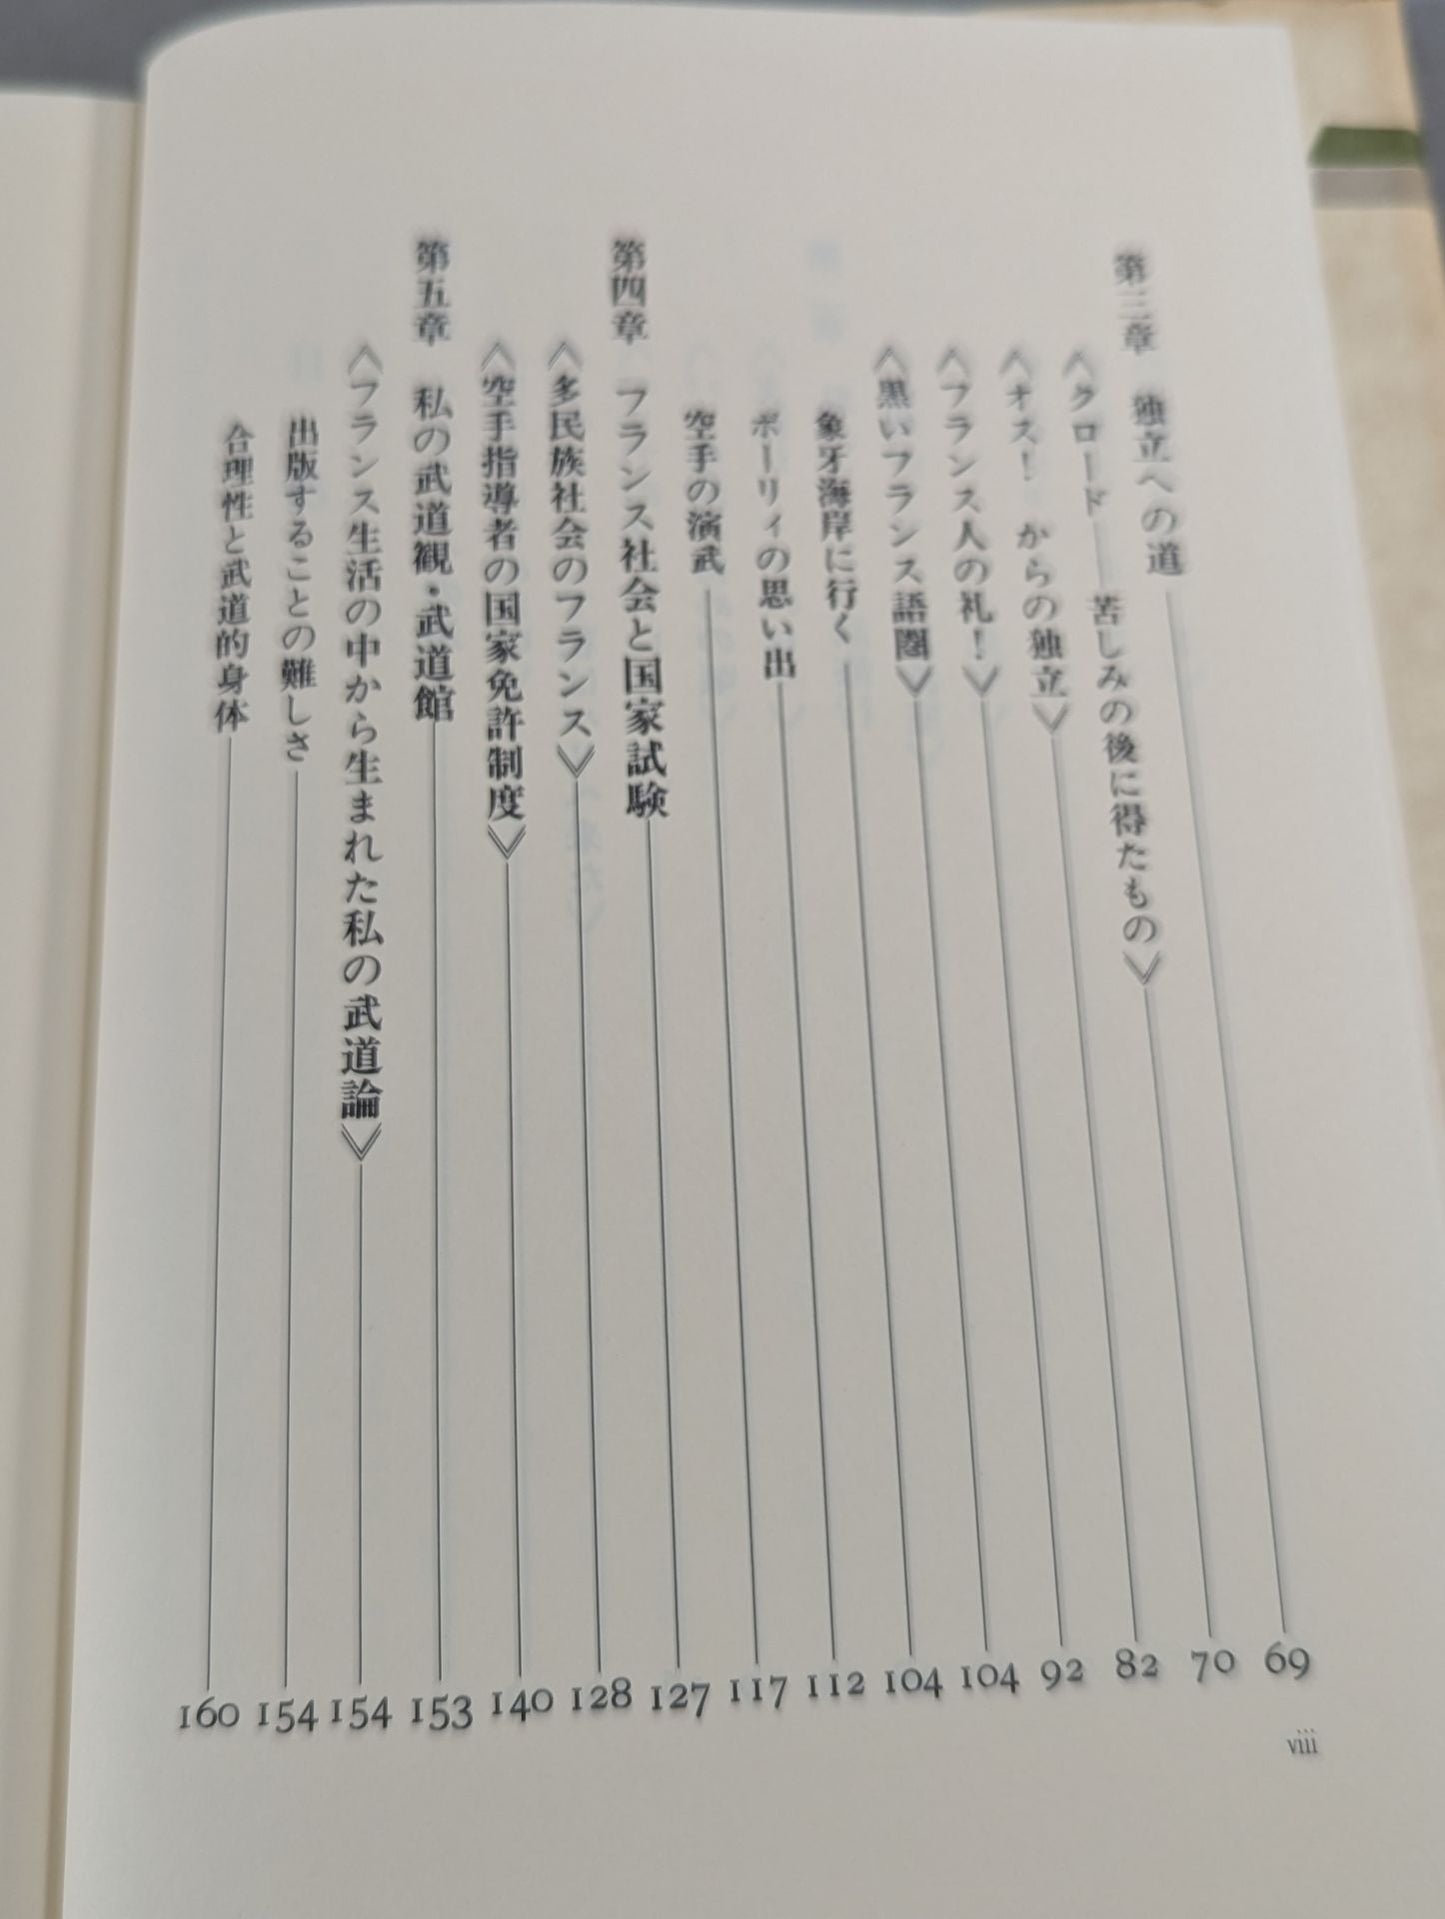 第三章　独立への道 69
《クロード――苦しみの後に得たもの》 70
《オス！　からの独立》 82
《フランス人の礼！》 92
《黒いフランス語圏》 104
象牙海岸に行く 104
ポーリィの思い出 112
空手の演武 117
第四章　フランス社会と国家試験 127
《多民族社会のフランス》 128
《空手指導者の国家免許制度》 140
第五章　私の武道観・武道館 153
《フランス生活の中から生まれた私の武道論》 154
出版することの難しさ 154
合理性と武道的身体 160
viii